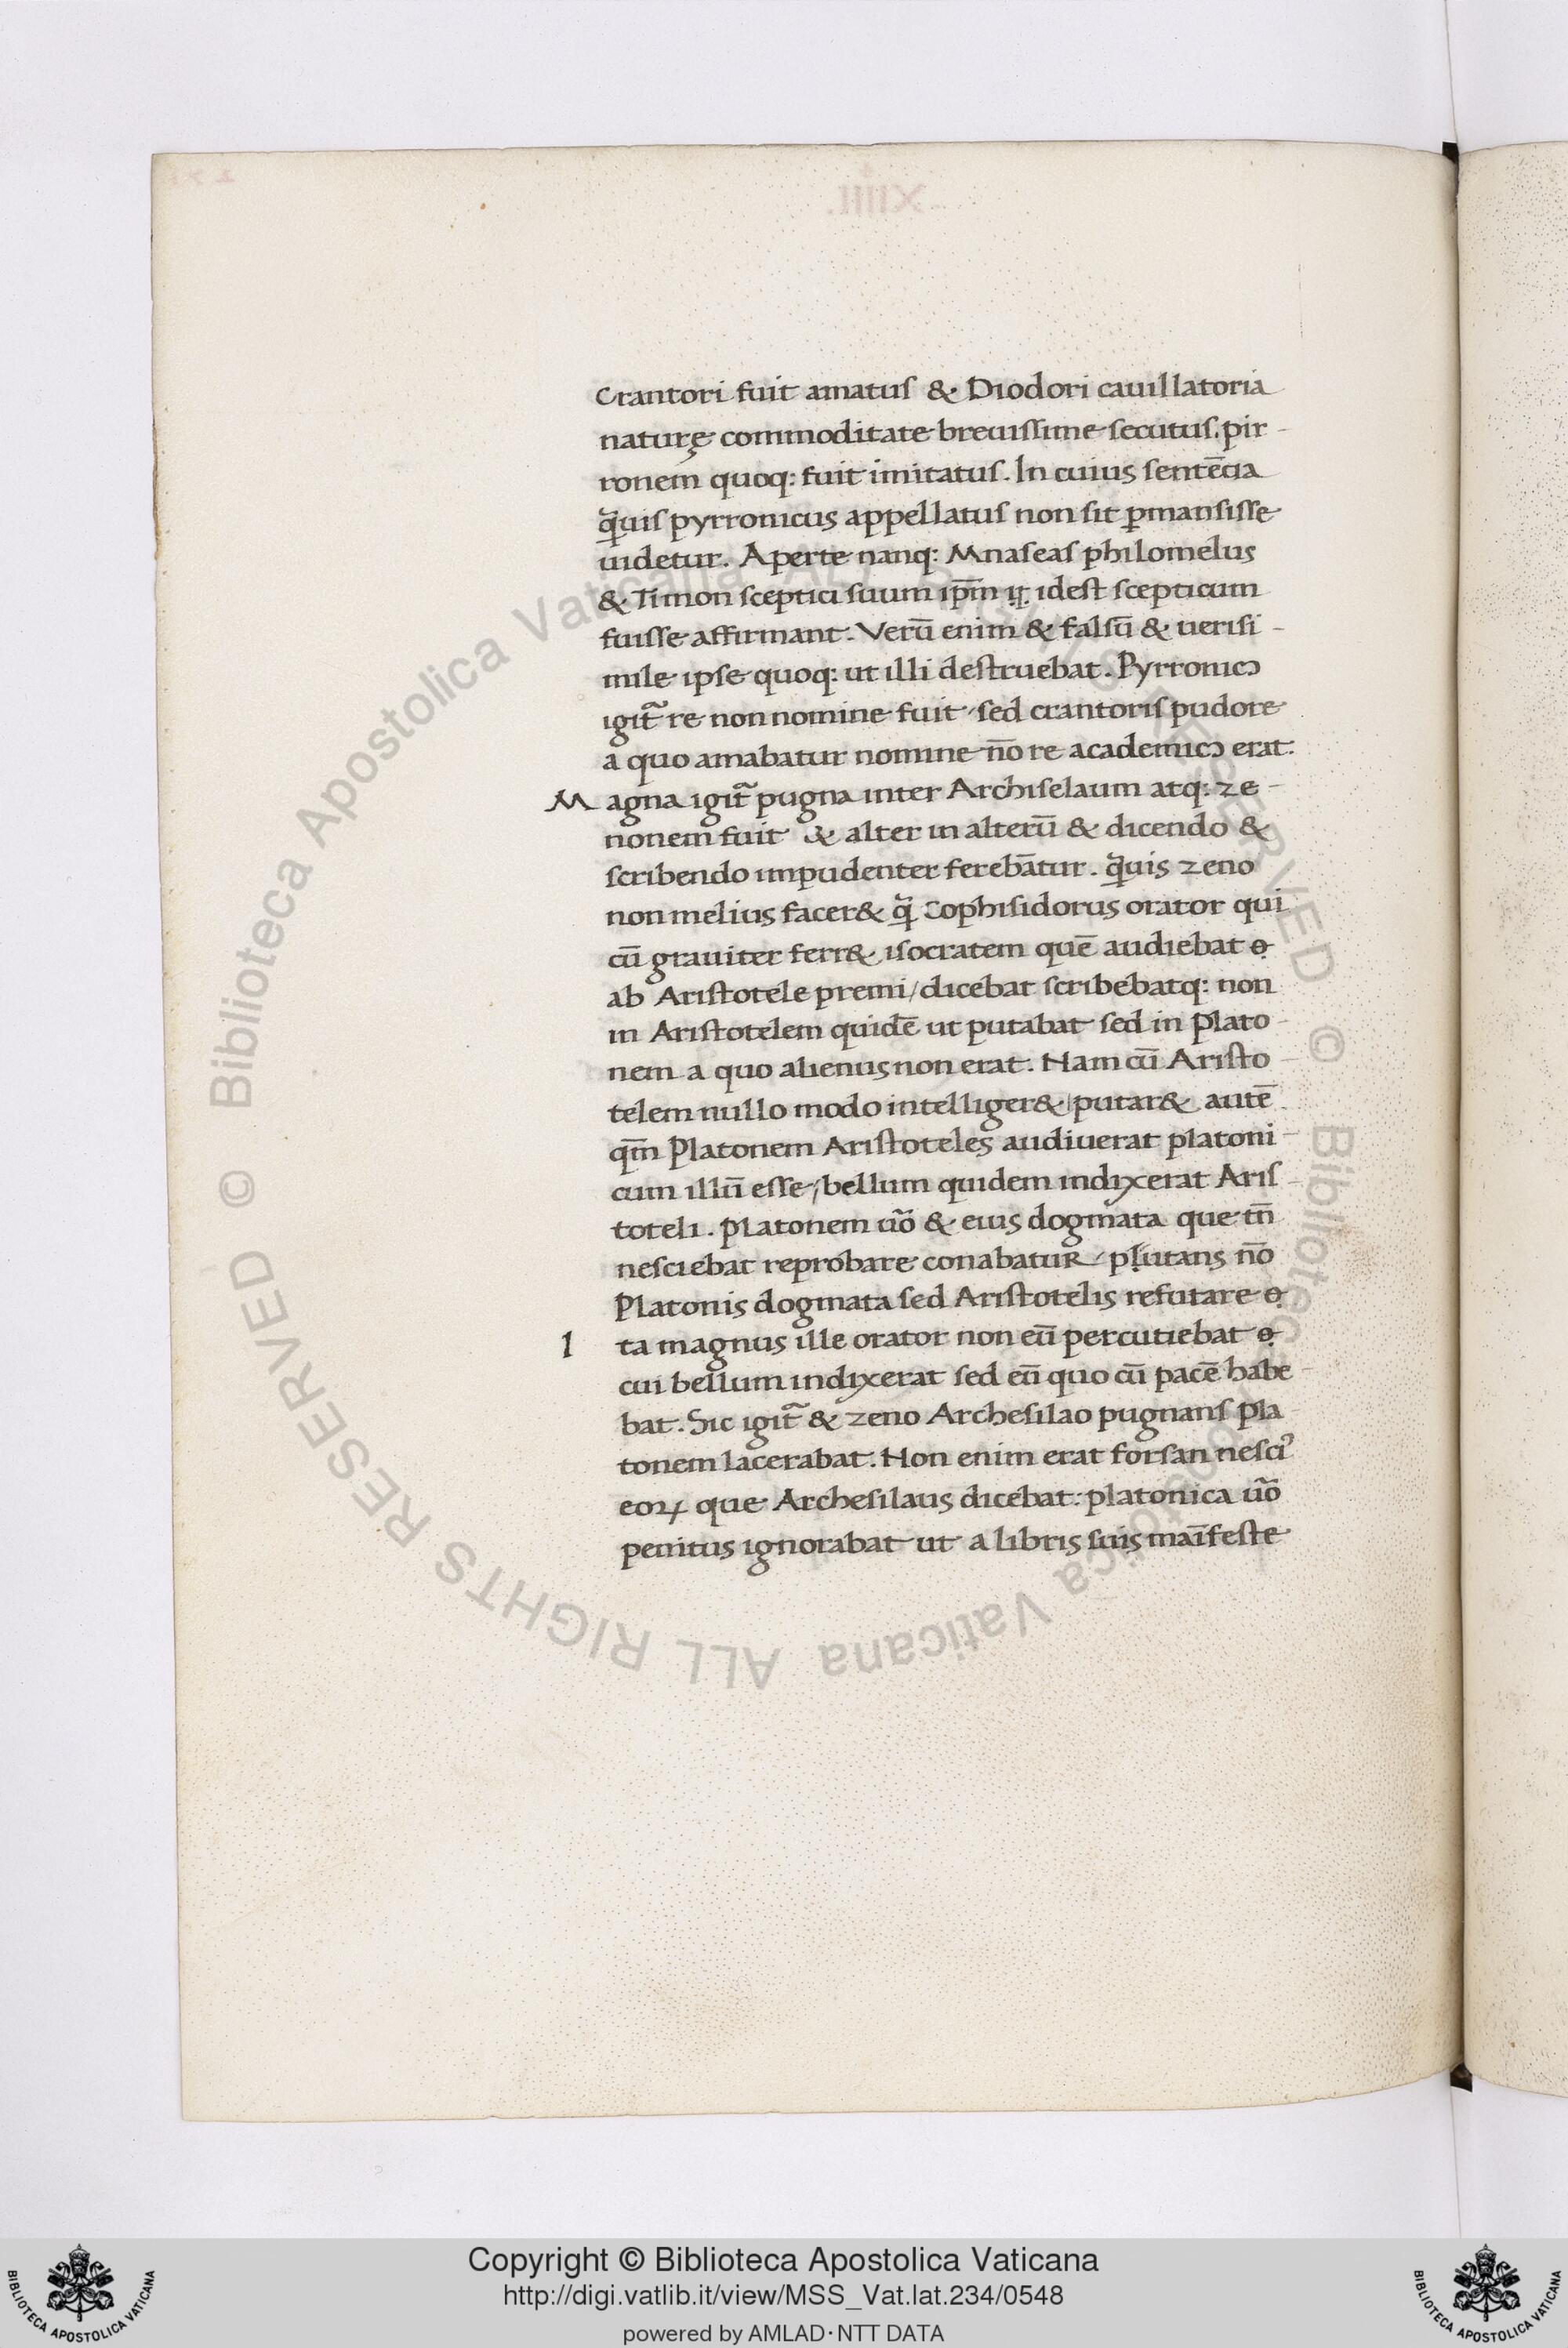 Crantori fuit amatus & Diodori cauillatoria
naturę commoditate breuissime secutus. pir-
ronem quoq: fuit imitatus. In cuius sentēcia
q̃uis pyrronicus appellatus non sit ꝑmansisse
uidetur. Aperte nanq: Mnaseas philomelus
& Timon sceptici suum ip̄m idest scepticum
fuisse affirmant. Verū enim & falsū & uerisi-
mile ipse quoq: ut illi destruebat. Pyrronicꝰ
igit̃ re non nomine fuit / sed crantoris pudore
a quo amabatur nomine nō re academicꝰ erat.
Magna igit̃ pugna inter Archiselaum atq: ze-
nonem fuit & alter in alterū & dicendo &
scribendo impudenter ferebātur. q̃uis zeno
non melius facer& q̃ Cophisidorus orator qui
cū grauiter ferr& isocratem quē audiebat
ab Aristotele premi / dicebat scribebatq: non
in Aristotelem quidē ut putabat sed in Plato-
nem a quo alienus non erat. Nam cū Aristo-
telem nullo modo intelliger& / putar& autē
qm̄ Platonem Aristoteles audiuerat platoni-
cum illū esse / bellum quidem indixerat Aris-
toteli. Platonem ũo & eius dogmata que tn̄
nesciebat reprobare conabatur / putans nō
Platonis dogmata sed Aristotelis refutare
Ita magnus ille orator non eū percutiebat
cui bellum indixerat sed eū quo cū pacē habe-
bat. Sic igit̃ & zeno Archesilao pugnans Pla-
tonem lacerabat. Non enim erat forsan nesciꝰ
eoꝝ que Archesilaus dicebat: platonica ũo
penitus ignorabat ut a libris suis maīfeste
© Biblioteca Apostolica Vaticana ALL RIGHTS RESERVED © Biblioteca Apostolica Vaticana ALL RIGHTS RESERVED
Copyright © Biblioteca Apostolica Vaticana
http://digi.vatlib.it/view/MSS_Vat.lat.234/0548
powered by AMLAD·NTT DATA
BIBLIOTECA APOSTOLICA VATICANA
BIBLIOTECA APOSTOLICA VATICANA